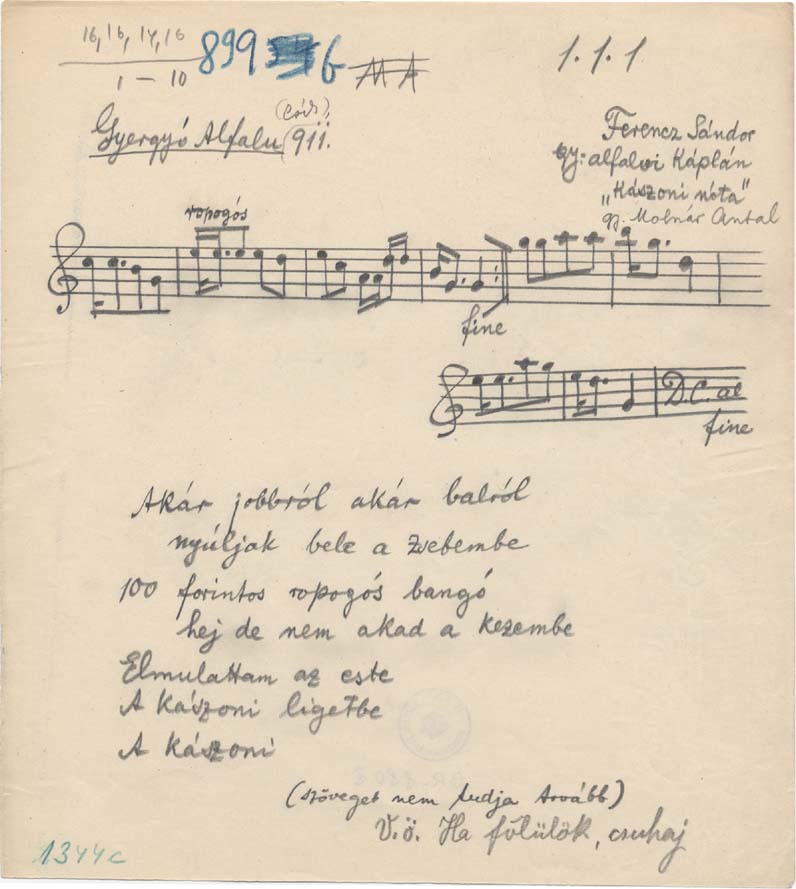 16, 16, 14, 16
1 – 10
899
b
MA
1. 1. 1
Gyergyó Alfalu 911.
Ferencz Sándor
gy: alfalvi Káplán
„Kászoni nóta”
gy. Molnár Antal
ropogós
fine
D.C. al
fine
Akár jobbról akár balról
nyúljak bele a zsebembe
100 forintos ropogós bangó
hej de nem akad a kezembe
Elmulattam az este
A kászoni ligetbe
A kászoni
(szöveget nem tudja tovább)
V.ö. Ha fölülök, csuhaj
1344c